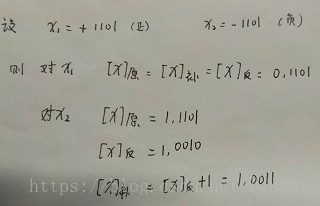 设 x₁ = + 1101 (正) x₂ = - 1101 (负)
则 对x₁ [x]原 = [x]补 = [x]反 = 0,1101
对x₂ [x]原 = 1,1101
[x]反 = 1,0010
[x]补 = [x]反 + 1 = 1,0011